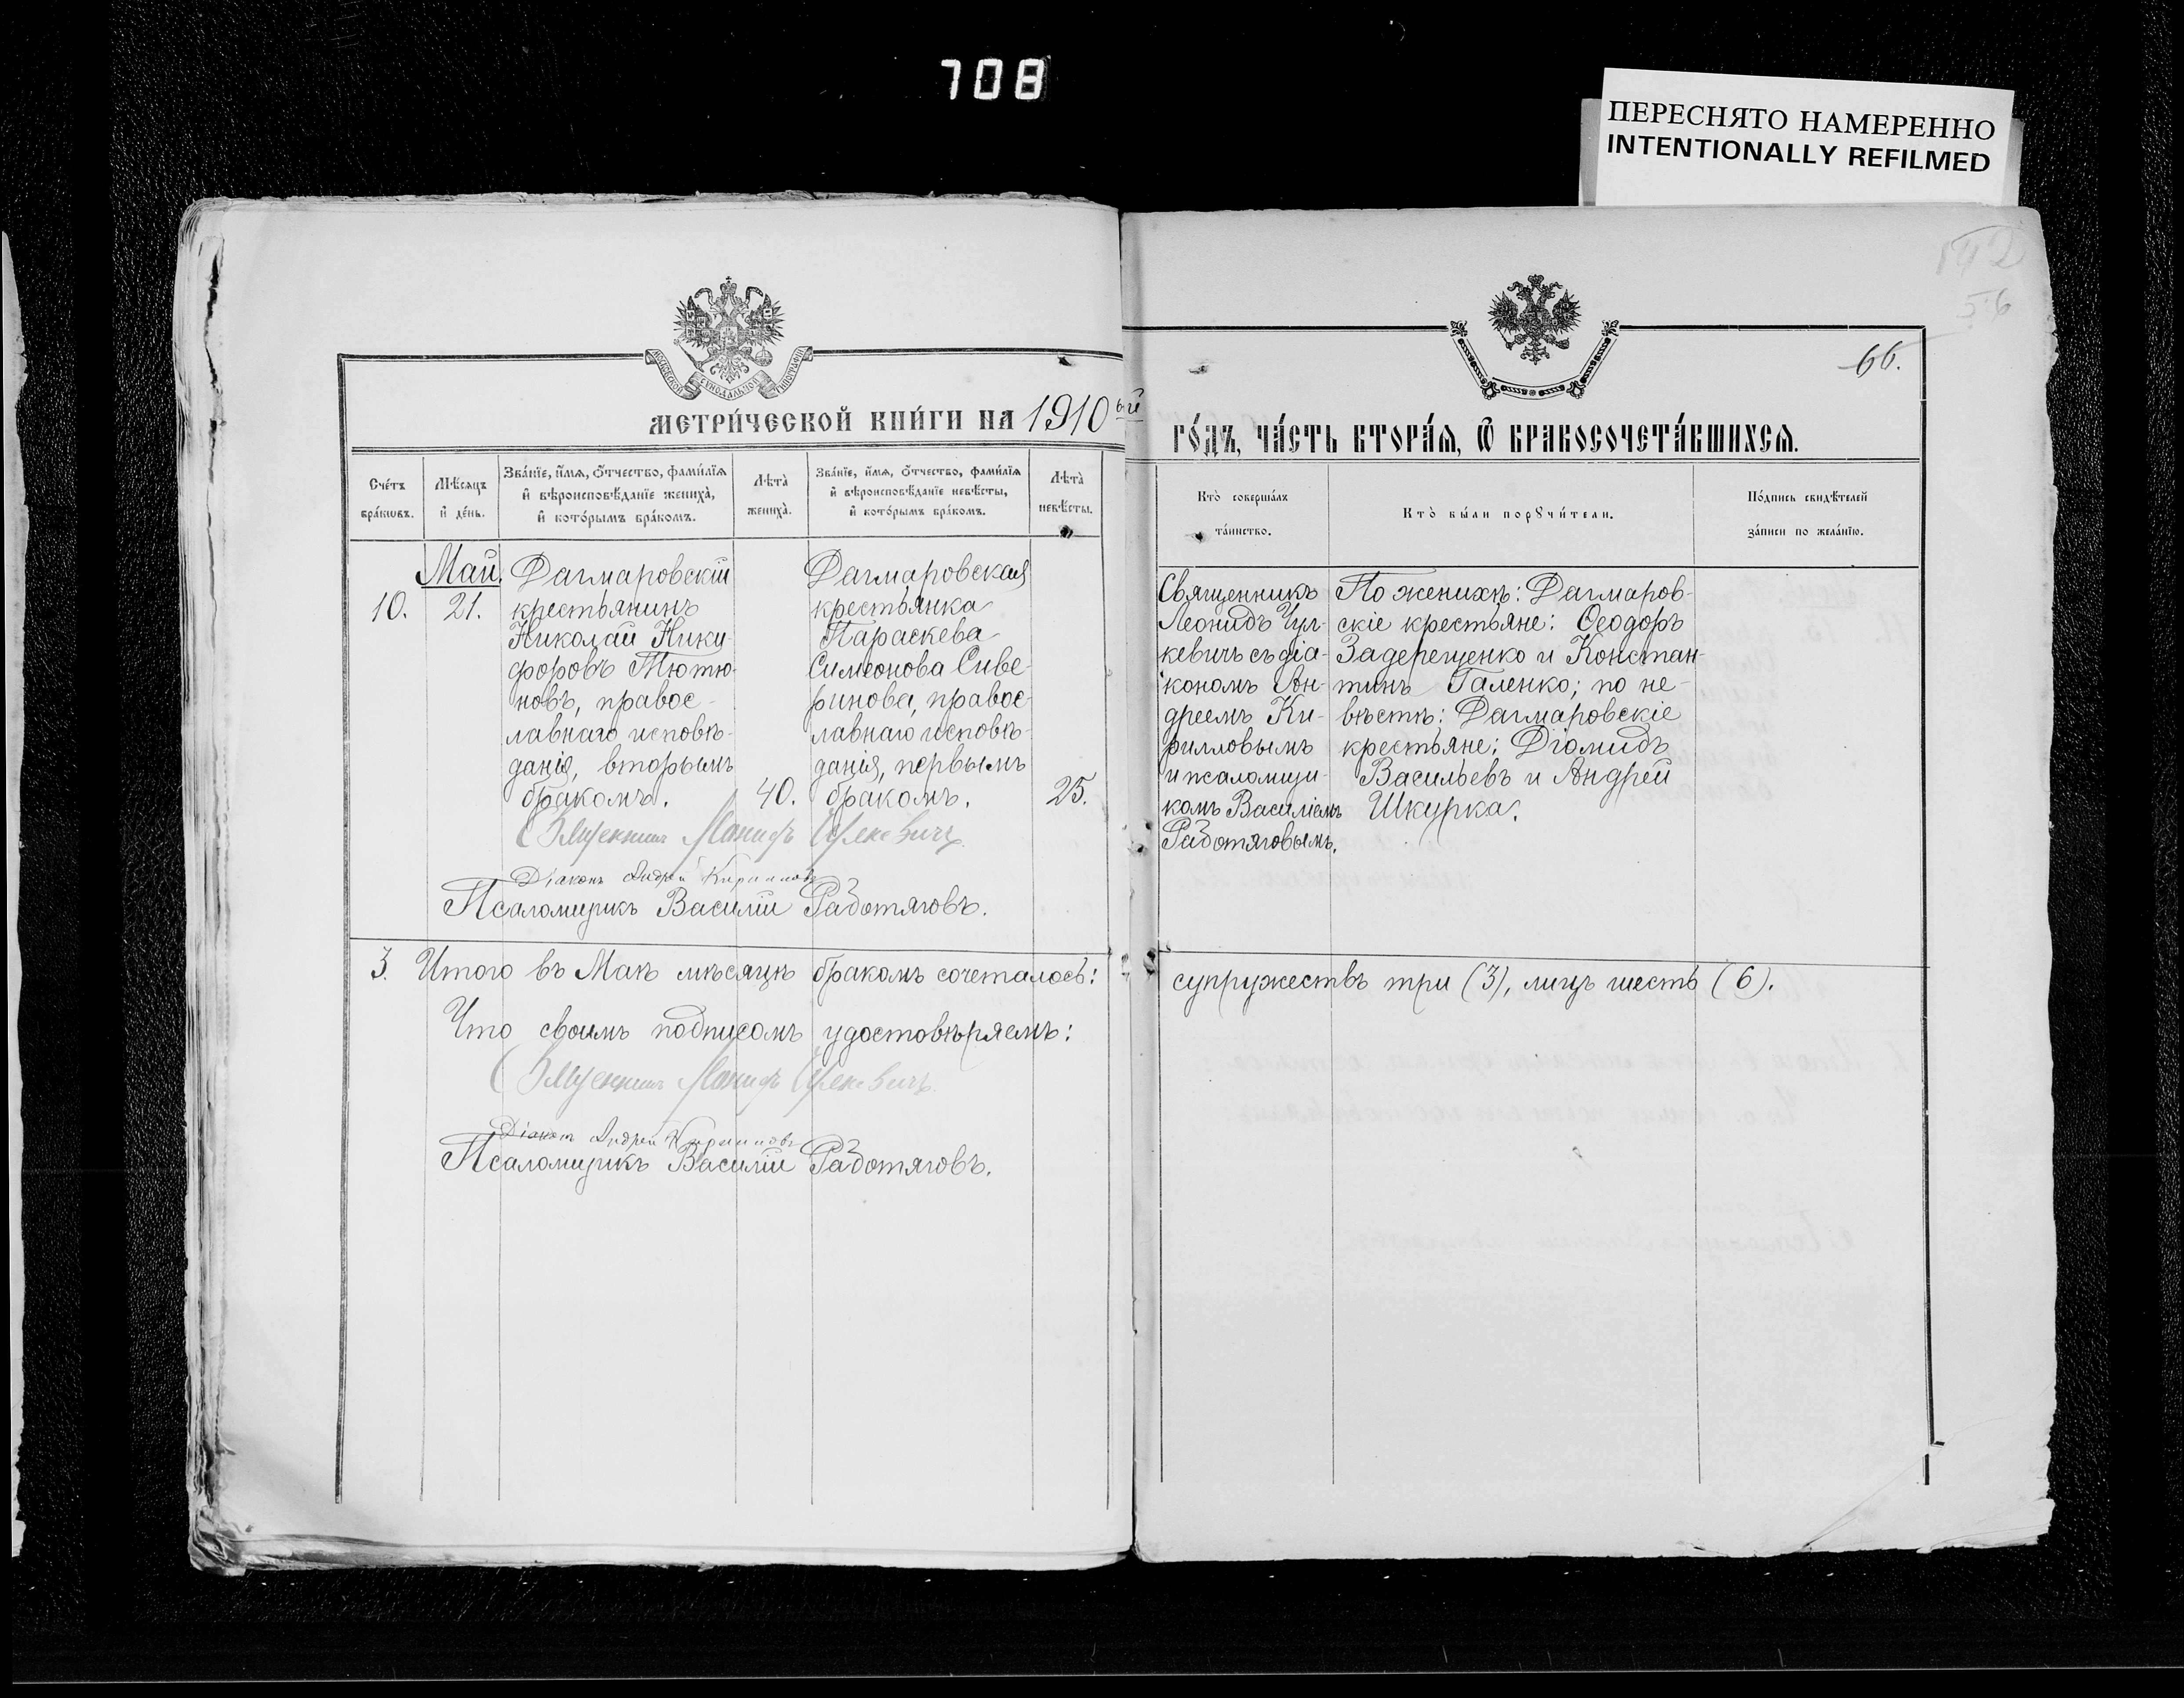 708
ПЕРЕСНЯТО НАМЕРЕННО
INTENTIONALLY REFILMED
56
66.
МОСКОВСКОЙ СУНОДАЛЬНОЙ ТИПОГРАФІИ
МЕТРИ́ЧЕСКОЙ КНИ́ГИ НА 1910ый
ГО́ДЪ, ЧА́СТЬ ВТОРА́Ѧ, Ѿ БРАКОСОЧЕТА́ВШИХСѦ.
Сче́тъ бра́кѡвъ.
Мѣ́сяцъ и҆ де́нь.
Зва́нїе, и҆́мѧ, ѻ҆́тчество, фами́лїѧ
и҆ вѣроисповѣ́данїе жениха̀,
и҆ кото́рымъ бра́комъ.
Лѣ́та̀ жениха̀.
Зва́нїе, и҆́мѧ, ѻ҆́тчество, фами́лїѧ
и҆ вѣроисповѣ́данїе невѣ́сты,
и҆ кото́рымъ бра́комъ.
Лѣ́та̀ невѣ́сты.
Кто̀ соверша́лъ
та́инство.
Кто̀ бы́ли порꙋчи́тели.
По́дпись свидѣ́телей
за́писи по жела́нїю.
10.
Май.
21.
Дагмаровскій
крестьянинъ
Николай Ники-
форовъ Тютю-
новъ, правос-
лавнаго исповѣ-
данія, вторымъ
бракомъ.
40.
Дагмаровская
крестьянка
Параскева
Симеонова Сиве-
ринова, правос-
лавнаго исповѣ-
данія, первымъ
бракомъ.
25.
Священникъ
Леонидъ Чул-
кевичъ съ діа-
кономъ Ан-
дреемъ Ки-
рилловымъ
и псаломщи-
комъ Василіемъ
Работяговымъ.
По женихѣ: Дагмаров-
скіе крестьяне: Ѳеодоръ
Задерещенко и Констан-
тинъ Галенко; по не-
вѣстѣ: Дагмаровскіе
крестьяне: Діомидъ
Васильевъ и Андрей
Шкурка.
Священникъ Леонидъ Чулкевичъ
Діаконъ Андрей Кирилловъ
Псаломщикъ Василій Работяговъ.
3. Итого въ Маѣ мѣсяцѣ бракомъ сочеталось: супружествъ три (3), лицъ шесть (6).
Что своимъ подписомъ удостовѣряемъ:
Священникъ Леонидъ Чулкевичъ.
Діаконъ Андрей Кирилловъ
Псаломщикъ Василій Работяговъ.